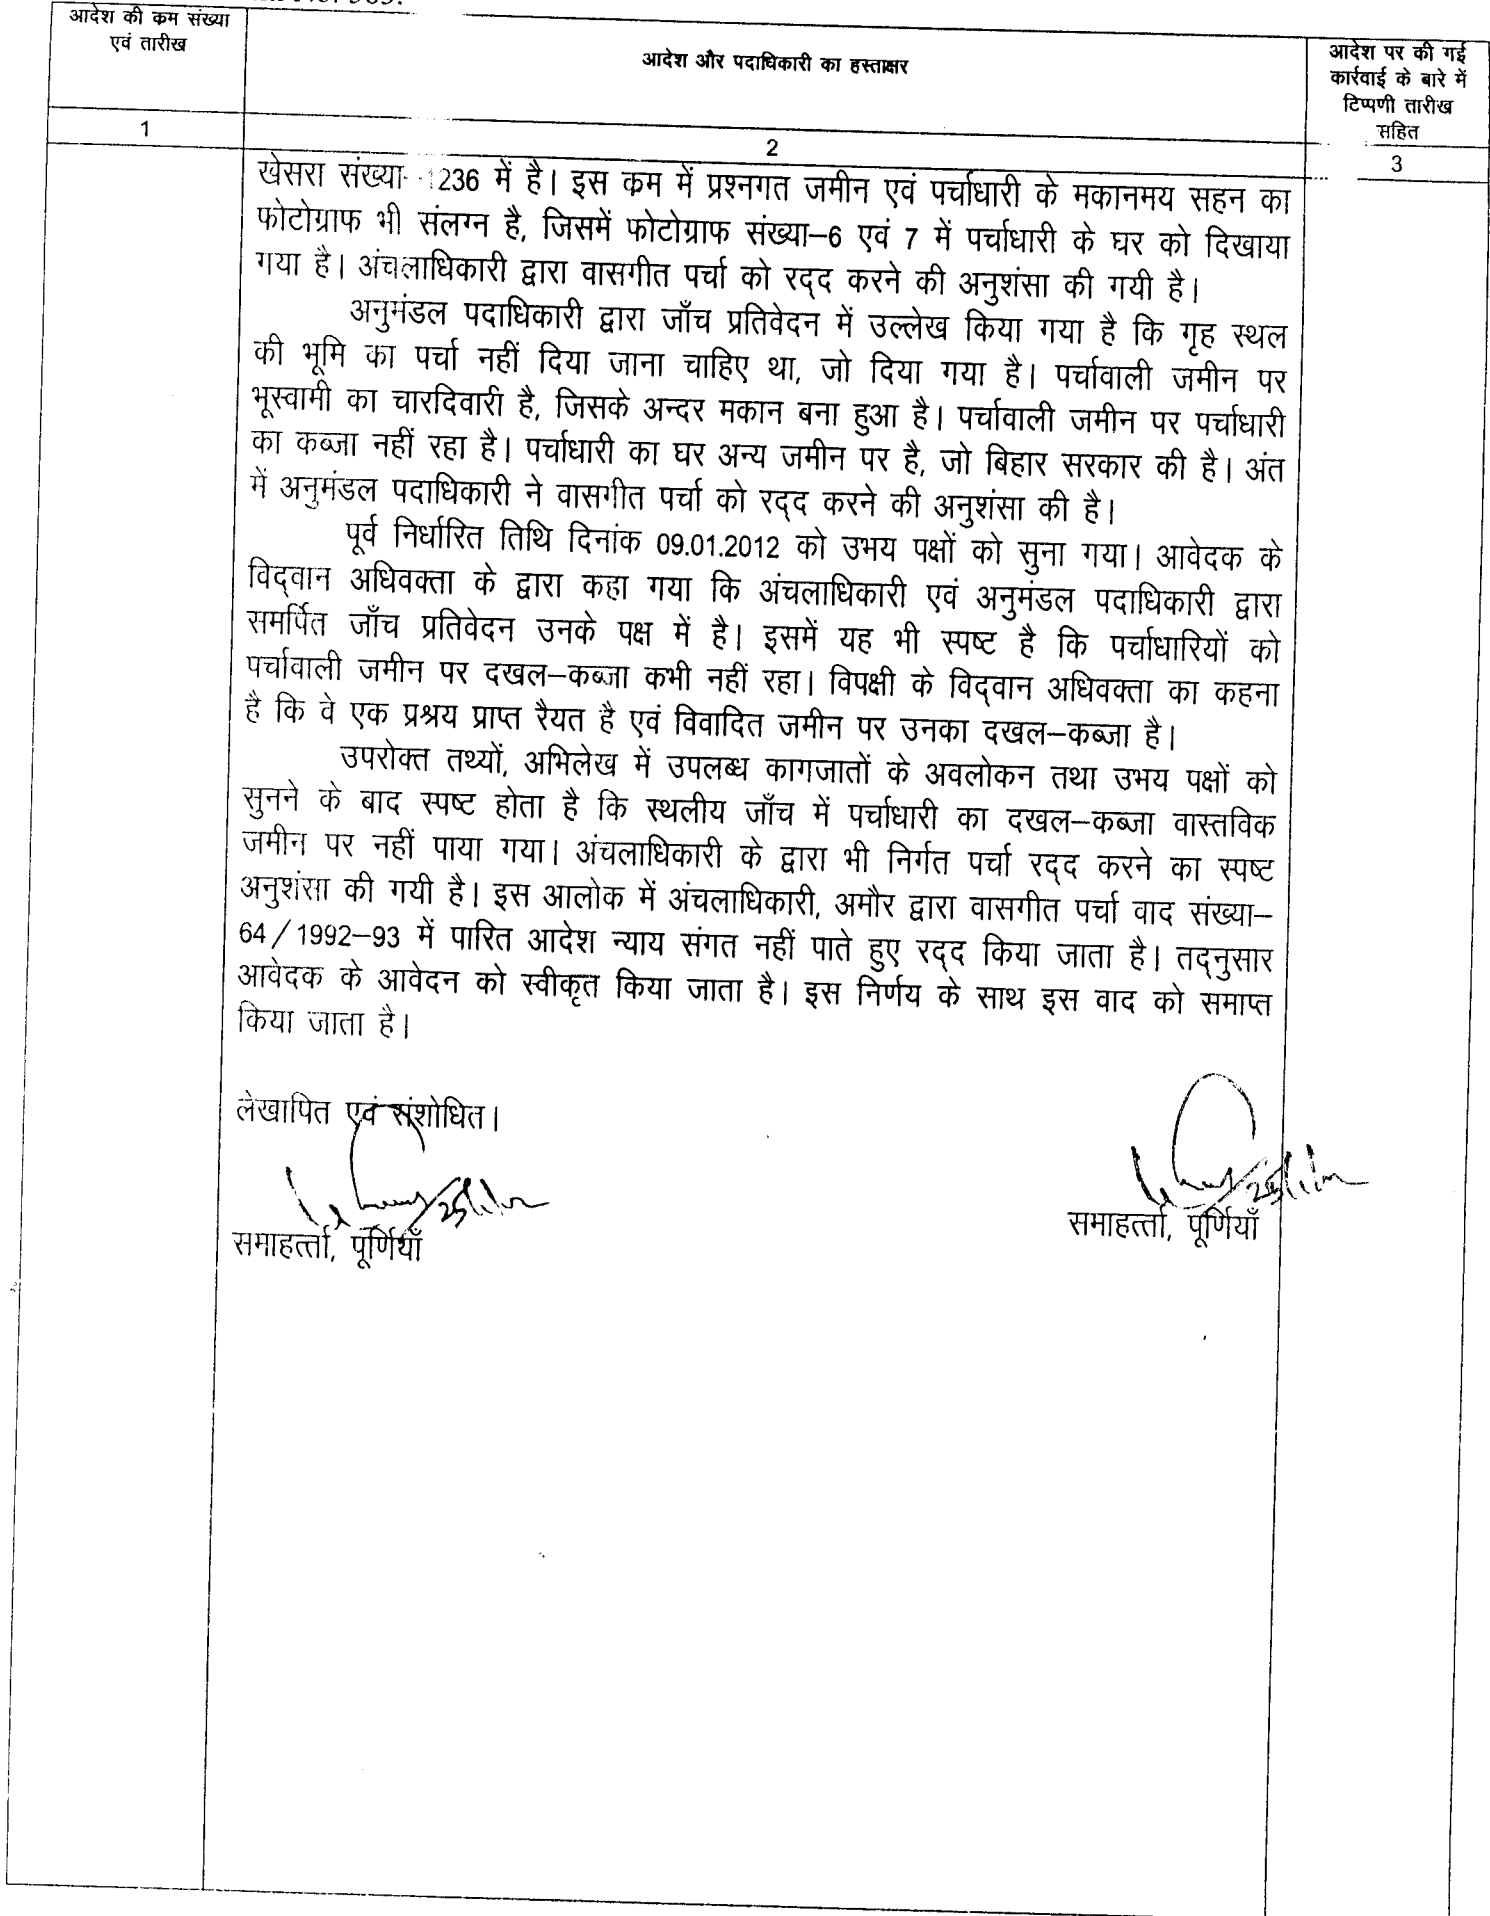 आदेश की कम संख्या
एवं तारीख
आदेश और पदाधिकारी का हस्ताक्षर
आदेश पर की गई
कार्रवाई के बारे में
टिप्पणी तारीख
सहित
1
2
3
खेसरा संख्या- 1236 में है। इस कम में प्रश्नगत जमीन एवं पर्चाधारी के मकानमय सहन का
फोटोग्राफ भी संलग्न है, जिसमें फोटोग्राफ संख्या–6 एवं 7 में पर्चाधारी के घर को दिखाया
गया है। अंचलाधिकारी द्वारा वासगीत पर्चा को रद्द करने की अनुशंसा की गयी है।
अनुमंडल पदाधिकारी द्वारा जाँच प्रतिवेदन में उल्लेख किया गया है कि गृह स्थल
की भूमि का पर्चा नहीं दिया जाना चाहिए था, जो दिया गया है। पर्चावाली जमीन पर
भूस्वामी का चारदिवारी है, जिसके अन्दर मकान बना हुआ है। पर्चावाली जमीन पर पर्चाधारी
का कब्जा नहीं रहा है। पर्चाधारी का घर अन्य जमीन पर है, जो बिहार सरकार की है। अंत
में अनुमंडल पदाधिकारी ने वासगीत पर्चा को रद्द करने की अनुशंसा की है।
पूर्व निर्धारित तिथि दिनांक 09.01.2012 को उभय पक्षों को सुना गया। आवेदक के
विद्वान अधिवक्ता के द्वारा कहा गया कि अंचलाधिकारी एवं अनुमंडल पदाधिकारी द्वारा
समर्पित जाँच प्रतिवेदन उनके पक्ष में है। इसमें यह भी स्पष्ट है कि पर्चाधारियों को
पर्चावाली जमीन पर दखल–कब्जा कभी नहीं रहा। विपक्षी के विद्वान अधिवक्ता का कहना
है कि वे एक प्रश्रय प्राप्त रैयत है एवं विवादित जमीन पर उनका दखल–कब्जा है।
उपरोक्त तथ्यों, अभिलेख में उपलब्ध कागजातों के अवलोकन तथा उभय पक्षों को
सुनने के बाद स्पष्ट होता है कि स्थलीय जाँच में पर्चाधारी का दखल–कब्जा वास्तविक
जमीन पर नहीं पाया गया। अंचलाधिकारी के द्वारा भी निर्गत पर्चा रद्द करने का स्पष्ट
अनुशंसा की गयी है। इस आलोक में अंचलाधिकारी, अमौर द्वारा वासगीत पर्चा वाद संख्या–
64/1992–93 में पारित आदेश न्याय संगत नहीं पाते हुए रद्द किया जाता है। तद्नुसार
आवेदक के आवेदन को स्वीकृत किया जाता है। इस निर्णय के साथ इस वाद को समाप्त
किया जाता है।
लेखापित एवं संशोधित।
समाहर्त्ता, पूर्णियाँ
समाहर्त्ता, पूर्णियाँ